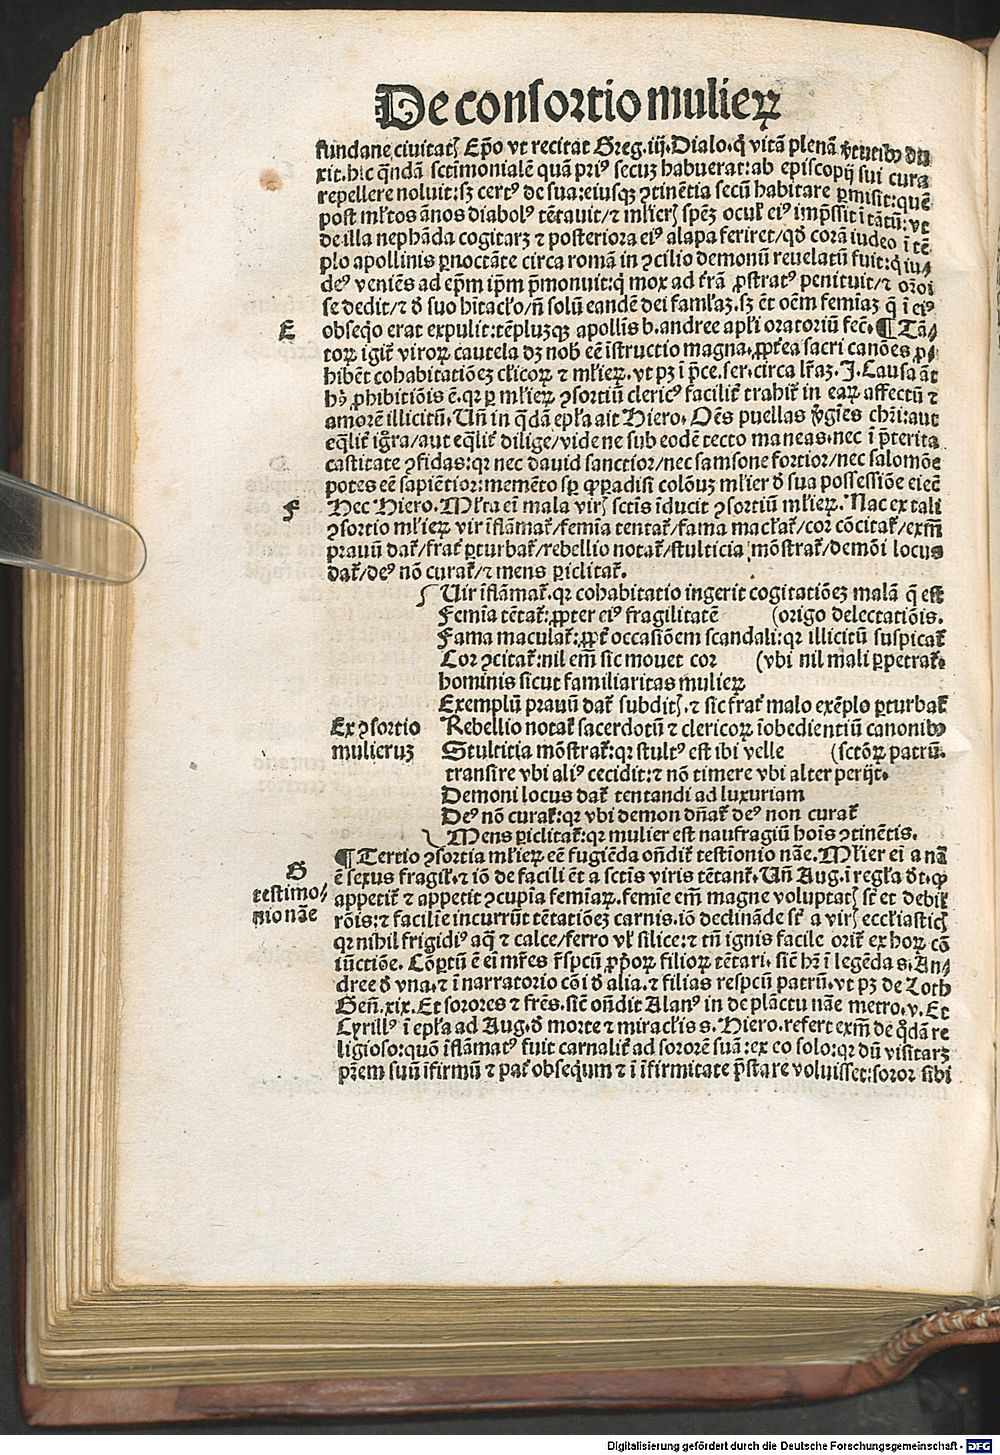 De consortio mulieꝝ
fundane ciuitatꝭ Epo vt recitat Greg. iij. Dialo. q̇ vitā plenā ꝟtutibꝰ du
xit. hic qͣndā sctimonialē quā priꝰ secuȝ habuerat: ab episcopij sui cura
repellere noluit: sȝ certꝰ de sua: eiusqȝ ꝯtinētia secū habitare ꝑmisit: quē
post ml̓tos ānos diabolꝰ tētauit/ ⁊ ml̓ierꝭ spēȝ ocul̓ eiꝰ imp̄ssit ī tātū: vt
de illa nephāda cogitarȝ ⁊ posteriora eiꝰ alapa feriret/ qd̓ corā iudeo ī tē
plo apollinis ꝑnoctāte circa romā in ꝯcilio demonū reuelatū fuit: q̇ iu/
deꝰ veniēs ad ep̄m ip̄m p̄monuit: q̇ mox ad t̓rā ꝓstratꝰ penituit/ ⁊ or̄oi
se dedit/ ⁊ d̓ suo h̄itacl̓o/ n̄ solū eandē dei famĺaȝ. sȝ ēt oēm femīaȝ q̄ ī eiꝰ
E
obseqͥo erat expulit: tēpluȝqȝ apollīs b. andree apl̓i oratoriū fec̄. ¶ Tā/
toꝝ igit̉ viroꝝ cautela dȝ nob̄ eē īstructio magna. ꝓpt̓ea sacri canōes ꝓ/
hibēt cohabitatiōeȝ cl̓icoꝝ ⁊ ml̓ieꝝ. vt pȝ ī p̄ce. ser. circa lr̄aȝ. J. Causa āt
hꝰ ꝓhibitiōis ē. qr ꝑ ml̓ieꝝ ꝯsortiū clericꝰ facilit̓ trahit̉ in eaꝝ affectū ⁊
amorē illicitū. Uñ in qͣdā epl̓a ait Hiero. Oēs puellas ꝟgīes chr̄i: aut
eq̄lit̓ igͦra/ aut eq̄lit̓ dilige/ vide ne sub eodē tecto maneas. nec ī p̄terita
castitate ꝯfidas: qr nec dauid sanctior/ nec samsone fortior/ nec salomōe
potes eē sapiētior: memēto sp̄ ꝙ ꝑadisi colōuȝ ml̓ier d̓ sua possessiōe eiecit
F
Hec Hiero. Ml̓ta eī mala virꝭ sctīs īducit ꝯsortiū ml̓ieꝝ. Nac ex tali
ꝯsortio ml̓ieꝝ vir īflāmat̉/ femīa tentat̉/ fama macl̓at̉/ cor cōcitat̉/ exm̄
prauū dat̉/ frat̓ ꝑturbat̉/ rebellio notat̉/ stulticia mōstrat̉/ demōi locus
dat̉/ deꝰ nō curat̉/ ⁊ mens ꝑiclitat̉.
Uir īflāmat̉. qr cohabitatio ingerit cogitatiōeȝ malā q̄ est
Femīa tētat̉: ꝓpter eiꝰ fragilitatē (origo delectatiōis.
Fama maculat̉: ꝓpt̓ occasiōem scandali: qr illicitū suspicat̉
Cor ꝯcitat̉: nil em̄ sic mouet cor (vbi nil mali ꝑpetrat̉.
hominis sicut familiaritas mulieꝝ
Exemplū prauū dat̉ subditꝭ. ⁊ sic frat̓ malo exēplo ꝑturbat̉
Ex ꝯsortio
mulieruȝ
Rebellio notat̉ sacerdotū ⁊ clericoꝝ īobedientiū canonibꝰ
Stultitia mōstrat̉: qr stultꝰ est ibi velle (sctōꝝ patrū.
transire vbi aliꝰ cecidit: ⁊ nō timere vbi alter perijt.
Demoni locus dat̉ tentandi ad luxuriam
Deꝰ nō curat̉: qr vbi demon dn̄at̉ deꝰ non curat̉
Mens ꝑiclitat̉: qr mulier est naufragiū hoīs ꝯtinētis.
G
testimo/
nio nāe
¶ Tertio ꝯsortia ml̓ieꝝ eē fugiēda on̄dit̉ testīonio nāe. Ml̓ier eī a nā
ē sexus fragil̓. ⁊ iō de facili ēt a sctīs viris tētant̉. Uñ Aug. ī regl̓a d̓t. ꝙ
appetit̉ ⁊ appetit ꝯcupīa femīaꝝ. femīe em̄ magne voluptatꝭ st̄ et debil̓
rōis: ⁊ facilīe incurrūt tētatiōeȝ carnis. iō declināde st̄ a virꝭ eccl̓iasticꝭ
qr nihil frigidiꝰ aq̄ ⁊ calce/ ferro vl̓ silice: ⁊ tn̄ ignis facile orit̉ ex hoꝝ cō
iūctiōe. Cōꝑtū ē eī mr̄es r̄spcū ꝓp̓oꝝ filioꝝ tētari. sic̄ hr̄ ī legēda s. An/
dree d̓ vna. ⁊ ī narratorio cōi d̓ alia. ⁊ filias respcū patrū. vt pȝ de Loth
Gen̄. xix. Et sorores ⁊ fr̄es. sic̄ on̄dit Alanꝰ in de plāctu nāe metro. v. Et
Cyrillꝰ ī epl̓a ad Aug. d̓ morte ⁊ miracl̓is s. Hiero. refert exm̄ de qͦdā re
ligioso: quō īflāmatꝰ fuit carnalit̓ ad sororē suā: ex eo solo: qr dū visitarȝ
pr̄em suū īfirmū ⁊ pat̓ obsequm ⁊ ī īfirmitate p̄stare voluisset: soror sibi
Digitalisierung gefördert durch die Deutsche Forschungsgemeinschaft - DFG